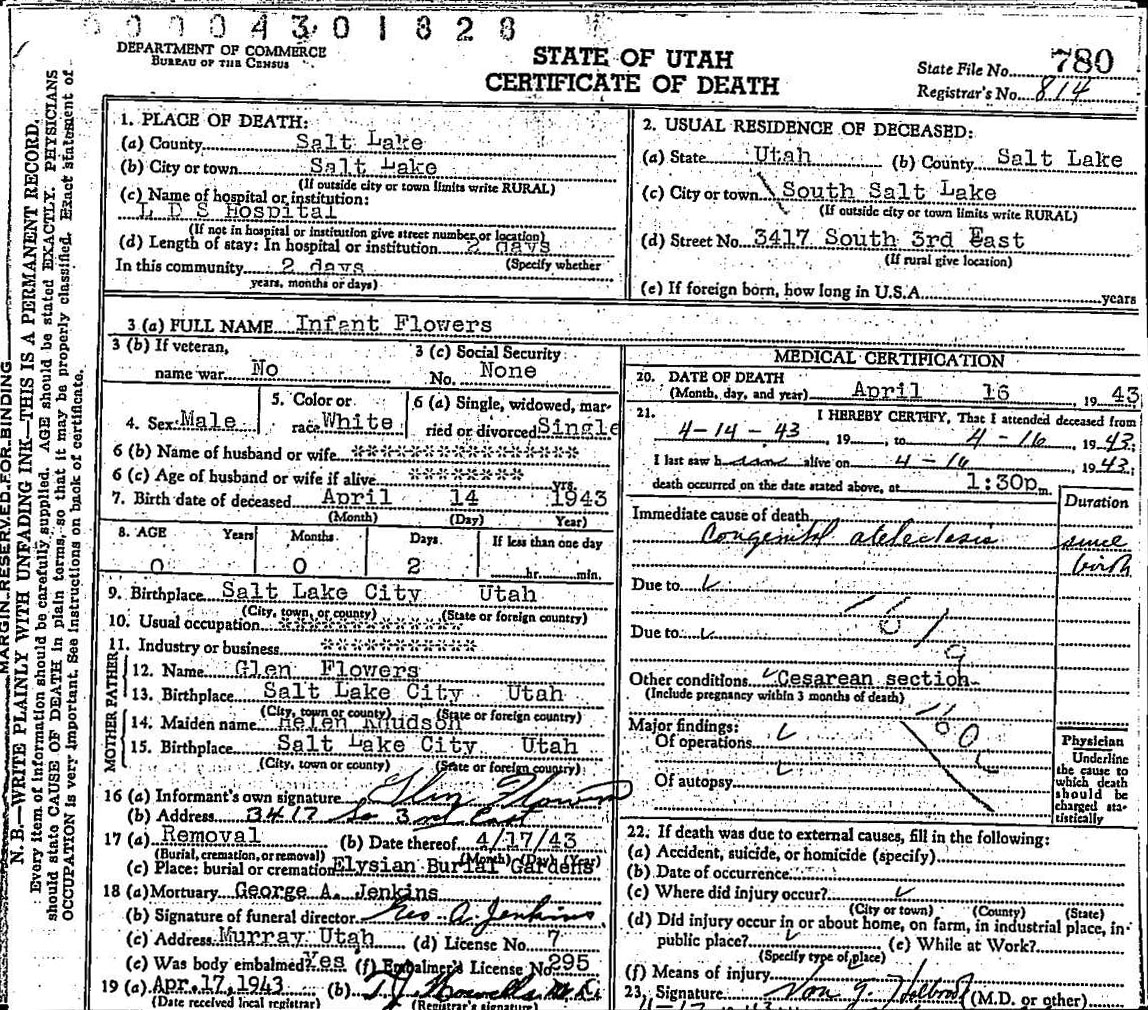 0000430 1828
DEPARTMENT OF COMMERCE
BUREAU OF THE CENSUS
STATE OF UTAH
CERTIFICATE OF DEATH
State File No. 780
Registrar's No. 814
MARGIN RESERVED FOR BINDING
N. B.—WRITE PLAINLY WITH UNFADING INK—THIS IS A PERMANENT RECORD.
Every item of information should be carefully supplied. AGE should be stated EXACTLY. PHYSICIANS
should state CAUSE OF DEATH in plain terms, so that it may be properly classified. Exact statement of
OCCUPATION is very important. See instructions on back of certificate.
1. PLACE OF DEATH:
(a) County Salt Lake
(b) City or town Salt Lake
(If outside city or town limits write RURAL)
(c) Name of hospital or institution:
L D S Hospital
(If not in hospital or institution give street number or location)
(d) Length of stay: In hospital or institution 2 days
In this community 2 days (Specify whether
years, months or days)
2. USUAL RESIDENCE OF DECEASED:
(a) State Utah (b) County Salt Lake
(c) City or town South Salt Lake
(If outside city or town limits write RURAL)
(d) Street No. 3417 South 3rd East
(If rural give location)
(e) If foreign born, how long in U.S.A. years
3 (a) FULL NAME Infant Flowers
3 (b) If veteran, 3 (c) Social Security
name war No No. None
4. Sex Male 5. Color or race White 6 (a) Single, widowed, married or divorced Single
6 (b) Name of husband or wife ********************
6 (c) Age of husband or wife if alive ********** yrs.
7. Birth date of deceased April 14 1943
(Month) (Day) Year)
8. AGE Years Months Days If less than one day
0 0 2 hr. min.
9. Birthplace Salt Lake City Utah
(City, town, or county) (State or foreign country)
10. Usual occupation ******************
11. Industry or business **************
FATHER
12. Name Glen Flowers
13. Birthplace Salt Lake City Utah
(City, town or county) (State or foreign country)
MOTHER
14. Maiden name Helen Knudson
15. Birthplace Salt Lake City Utah
(City, town or county) (State or foreign country)
16 (a) Informant's own signature Glen Flowers
(b) Address 3417 So 3rd East
17 (a) Removal (b) Date thereof 4/17/43
(Burial, cremation, or removal) (Month) (Day) (Year)
(c) Place: burial or cremation Elysian Burial Gardens
18 (a) Mortuary George A. Jenkins
(b) Signature of funeral director Geo A. Jenkins
(c) Address Murray Utah (d) License No. 7
(e) Was body embalmed? Yes (f) Embalmer's License No. 295
19 (a) Apr. 17, 1943 (b)
(Date received local registrar) (Registrar's signature)
MEDICAL CERTIFICATION
20. DATE OF DEATH
(Month, day, and year) April 16 19 43
21. I HEREBY CERTIFY, That I attended deceased from
4-14-43, 19, to 4-16 1943;
I last saw h alive on 4-16, 1943;
death occurred on the date stated above, at 1:30p m.
Duration
Immediate cause of death
Congenital atelectasis since
birth
Due to
Due to
Other conditions Cesarean section
(Include pregnancy within 3 months of death)
Major findings:
Of operations
Of autopsy
Physician
Underline
the cause to
which death
should be
charged sta-
tistically
22. If death was due to external causes, fill in the following:
(a) Accident, suicide, or homicide (specify)
(b) Date of occurrence
(c) Where did injury occur?
(City or town) (County) (State)
(d) Did injury occur in or about home, on farm, in industrial place, in-
public place? (e) While at Work?
(Specify type of place)
(f) Means of injury
23. Signature (M.D. or other)